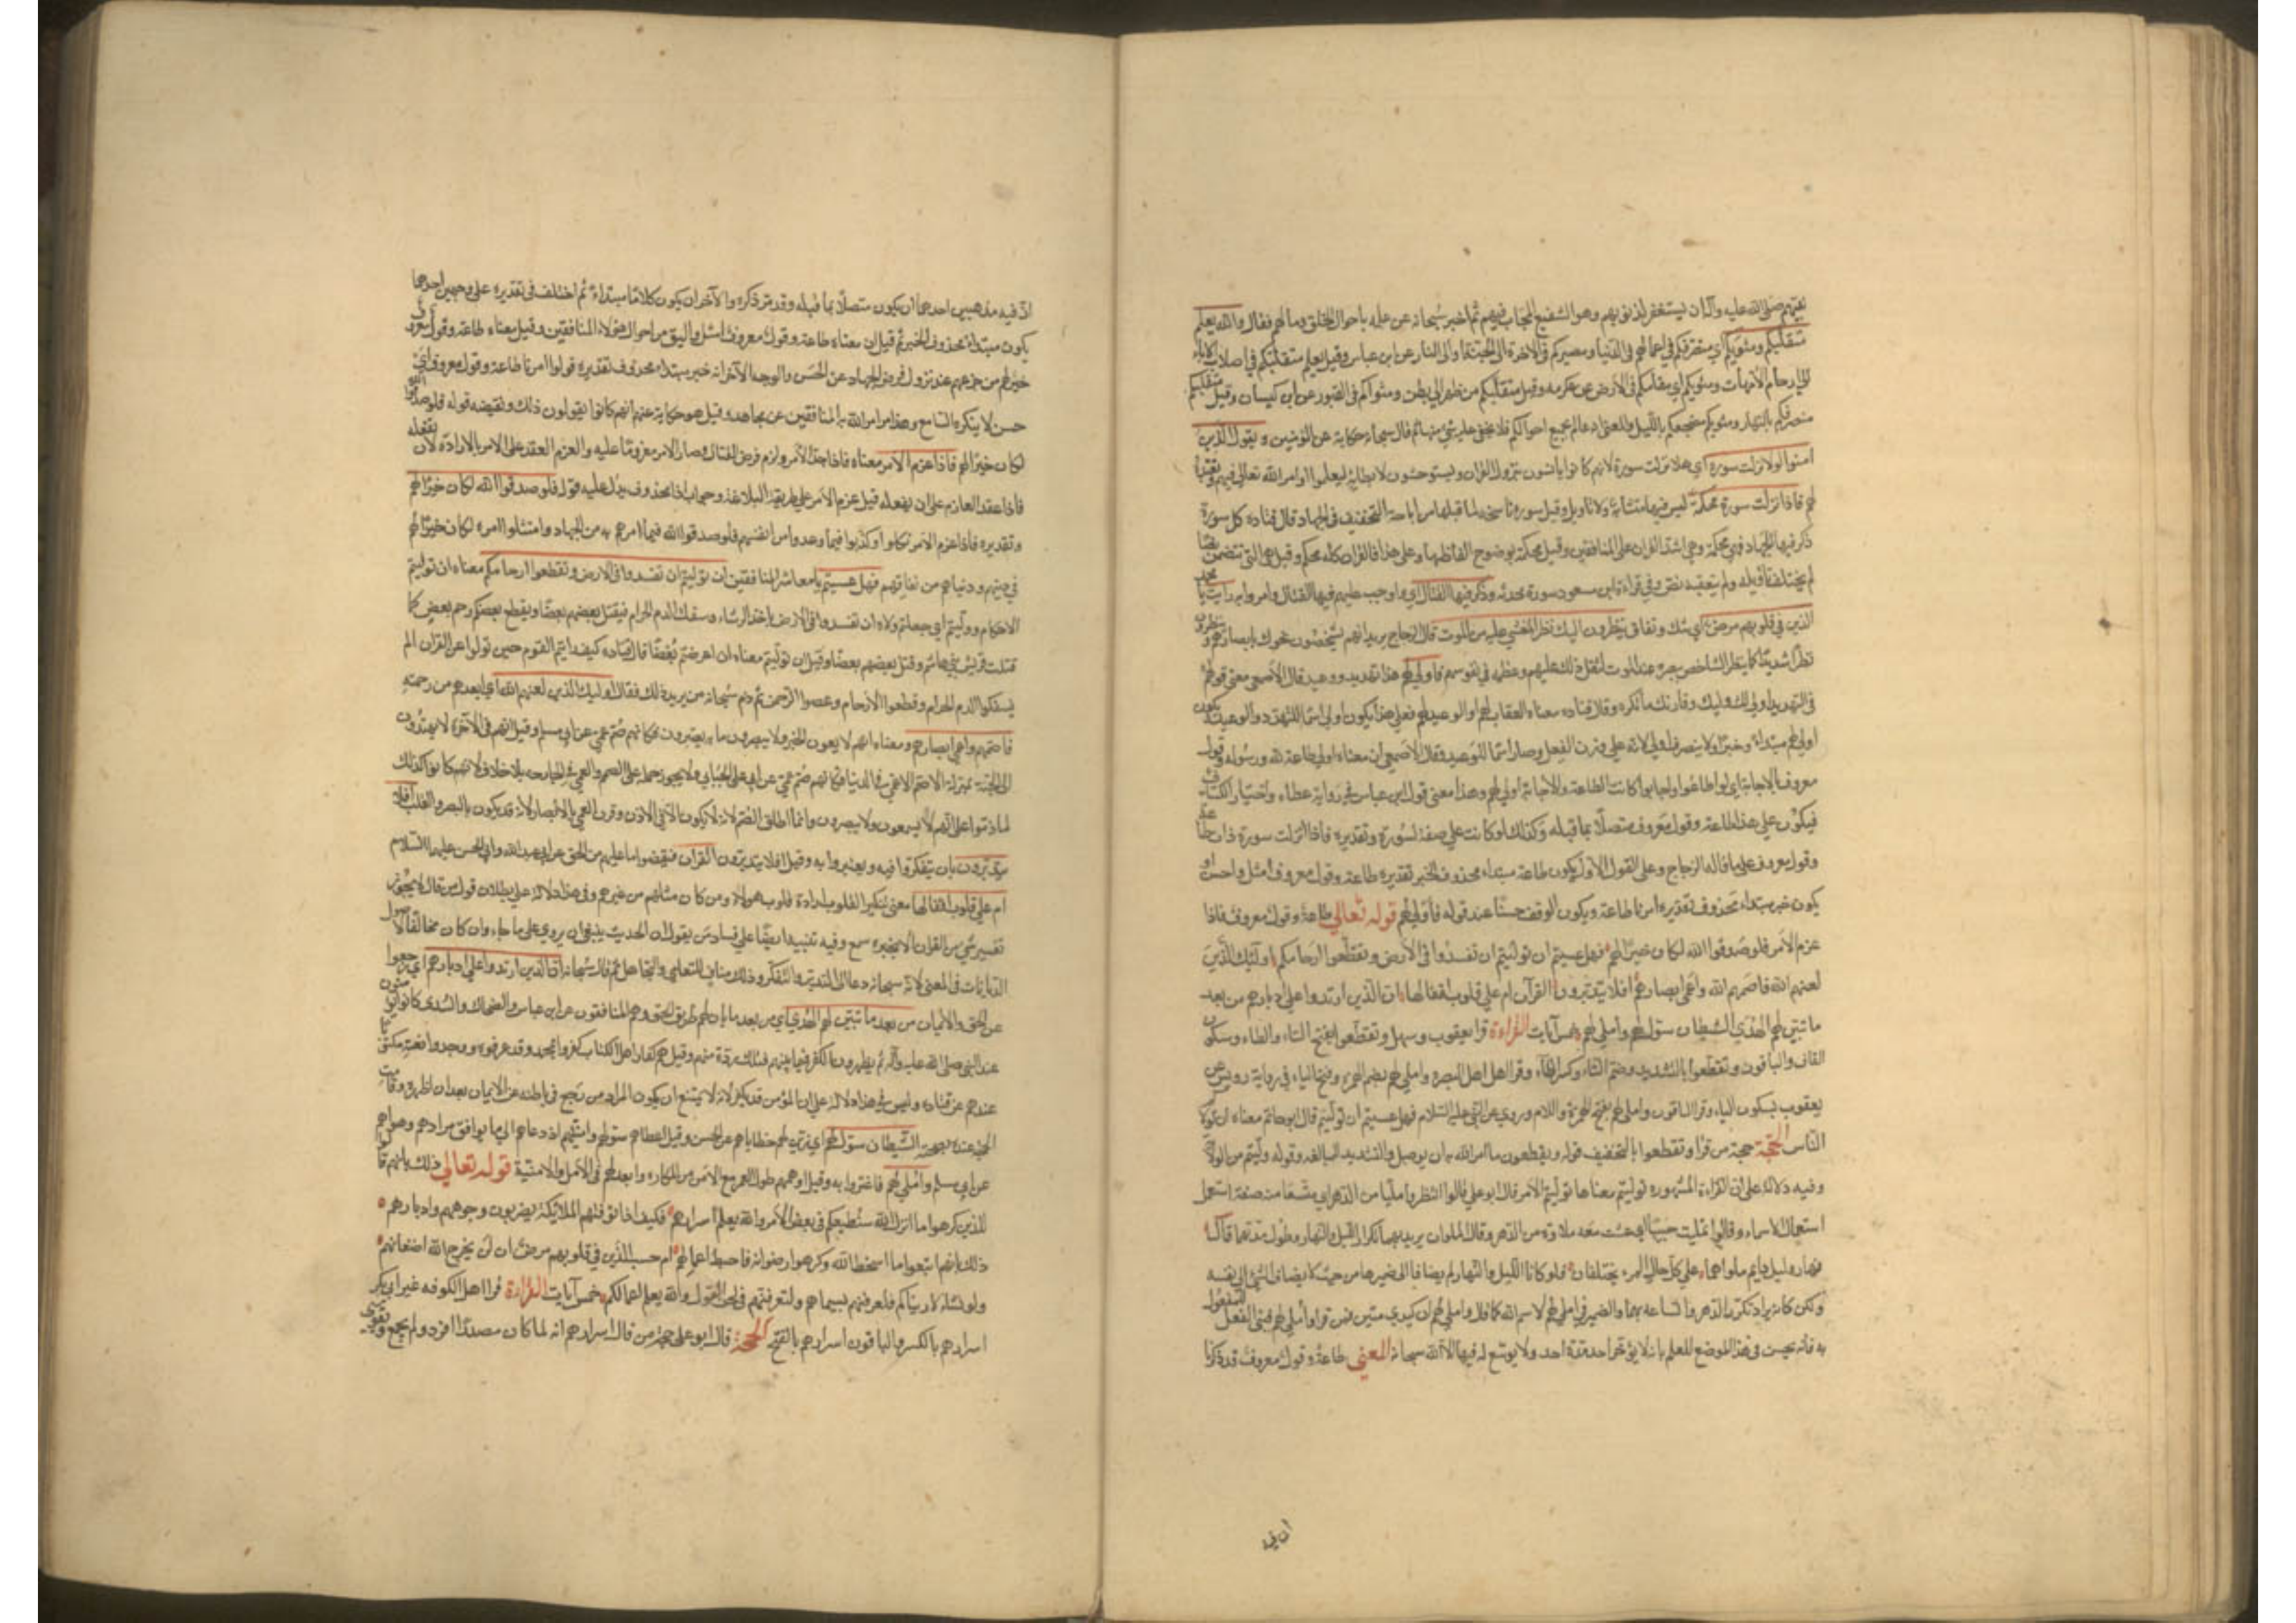 نبيهم صلى الله عليه وآله ان يستغفر لذنوبهم وهو الشفيع المجاب فيهم ثم اخبر سبحانه عن علمه باحوال الخلق ومالهم فقال والله يعلم
متقلبكم ومثويكم اي متصرفكم في اعمالكم في الدنيا ومصيركم في الاخرة الى الجنة او الى النار عن ابن عباس وقيل يعلم متقلبكم في اصلاب الاباء
الى ارحام الامهات ومثويكم اي مقامكم في الارض عن عكرمه وقيل متقلبكم من ظهر الى بطن ومثواكم في القبور عن ابن كيسان وقيل متقلبكم
متصرفكم بالنهار ومثويكم مضجعكم بالليل والمعنى انه عالم بجميع احوالكم فلا يخفى عليه شئ منها ثم قال سبحانه حكاية عن المؤمنين ويقول الذين
امنوا لولا نزلت سورة اي هلا نزلت سورة لانهم كانوا يانسون بنزول القران ويستوحشون لابطائه ليعلموا اوامر الله تعالى فيهم وتعبده
لهم فاذا نزلت سورة محكمة ليس فيها متشابه ولا تاويل وقيل سورة ناسخة لما قبلها من اباحة التخفيف في الجهاد قال قتاده كل سورة
ذكر فيها الجهاد فهي محكمة وهي اشد القران على المنافقين وقيل محكمة بوضوح الفاظها وعلى هذا فالقران كله محكم وقيل هي التي تتضمن نصا
لم يختلف تاويله ولم يتعقبه نص وفي قراءة ابن مسعود سورة محدثه وذكر فيها القتال اي واوجب عليهم فيها القتال وامروا به رايت يا محمد
الذين في قلوبهم مرض اي شك ونفاق ينظرون اليك نظر المغشي عليه من الموت قال الزجاج يريد انهم يشخصون نحوك بابصارهم وينظرون
نظرا شديدا كما ينظر الشاخص ببصره عند الموت لثقل ذلك عليهم وعظمه في نفوسهم فاولى لهم هذا تهديد ووعيد قال الاصمعي معنى قولهم
في التهديد اولى لك وليك وقارنك ما تكره وقال قتاده معناه العقاب لهم او الوعيد لهم فعلى هذا يكون اولى اسما للتهدد والوعيد ويكون
اولى لهم مبتداء وخبرا ولا ينصرف اولى لانه على وزن الفعل وصار اسما للوعيد وقال الاصمعي ان معناه اولى طاعة لله ورسوله وقول
معروف بالاجابة اي لو اطاعوا واجابوا كانت الطاعة والاجابة اولى لهم وهذا معنى قول ابن عباس في رواية عطاء واختيار الكسائي
فيكون على هذا طاعة وقول معروف متصلا بما قبله وكذلك لو كانت على صفة لسورة وتقديره فاذا انزلت سورة ذات طاعة
وقول معروف على ما قاله الزجاج وعلى القول الاول يكون طاعة مبتداء محذوف الخبر تقديره طاعة وقول معروف امثل واحسن او
يكون خبر مبتداء محذوف تقديره امرنا طاعة ويكون الوقف حسنا عند قوله فاولى لهم قوله تعالى طاعة وقول معروف فاذا
عزم الامر فلو صدقوا الله لكان خيرا لهم فهل عسيتم ان توليتم ان تفسدوا في الارض وتقطعوا ارحامكم اولئك الذين
لعنهم الله فاصمهم الله واعمى ابصارهم افلا يتدبرون القرآن ام على قلوب اقفالها ان الذين ارتدوا على ادبارهم من بعد
ما تبين لهم الهدى الشيطان سول لهم واملى لهم خمس آيات القراءة قرا يعقوب وسهل وتقطعوا بفتح التاء والطاء وسكون
القاف والباقون وتقطعوا بالتشديد وضم التاء وكسر الطاء وقرا اهل البصره واملي لهم بضم الهمزة وفتح الياء في رواية رويس عن
يعقوب بسكون الياء وقرا الباقون واملى لهم بفتح الهمزة واللام وروي عن النبي عليه السلام فهل عسيتم ان توليتم قال ابو حاتم معناه ان تولاكم
الناس الحجة حجة من قرا وتقطعوا بالتخفيف قوله ويقطعون ما امر الله به ان يوصل والتشديد للمبالغه وقوله وليتم من الولاية
وفيه دلالة على ان القراءة المشهوره توليتم معناها توليتم الامر قال ابو علي قالوا انتظر مليا من الدهر اي متسعا منه صفة استعمل
استعمال الاسماء وقالوا تمليت حبيبا اي عشت معه ملاوة من الدهر وقالوا الملوان يريد بهما تكرار الليل والنهار وطول مدتهما قال
نهار وليل دايم ملواهما على كل حال المرء يختلفان فلو كانا الليل والنهار لم يضافا الى ضميرهما من حيث لا يضاف الشئ الى نفسه
ولكن كانه يراد تكرر الدهر والساعة بهما والضمير في املى لهم لاسم الله كما قال واملي لهم ان كيدي متين فمن قرا واملي لهم فبنى الفعل للمفعول
به فانه يحسن في هذا الموضع للعلم بانه لا يؤخر احد مدة احد ولا يوسع له فيها الا الله سبحانه المعنى طاعة وقول معروف قد ذكرنا
ان فيه
ان فيه مذهبين احدهما ان يكون متصلا بما قبله وقد مر ذكره والآخر ان يكون كلاما مبتداء ثم اختلف في تقديره على وجهين احدهما
يكون مبتداء محذوف الخبر ثم قيل ان معناه طاعة وقول معروف امثل واليق من احوال هؤلاء المنافقين وقيل معناه طاعة وقول معروف
خير لهم من جزعهم عند نزول فرض الجهاد عن الحسن والوجه الآخر انه خبر مبتداء محذوف تقديره قولوا امرنا طاعة وقول معروف اي
حسن لا ينكره السامع وهذا امر امر الله به المنافقين عن مجاهد وقيل هو حكاية عنهم انهم كانوا يقولون ذلك ونقيضه قوله فلو صدقوا الله
لكان خيرا لهم فاذا عزم الامر معناه فاذا جد الامر ولزم فرض القتال وصار الامر معزوما عليه والعزم العقد على الامر بالارادة لان يفعله
فاذا عقد العازم على ان يفعله قيل عزم الامر على طريقة البلاغة وجواب اذا محذوف يدل عليه قوله فلو صدقوا الله لكان خيرا لهم
وتقديره فاذا عزم الامر نكلوا وكذبوا فيما وعدوا من انفسهم فلو صدقوا الله فيما امرهم به من الجهاد وامتثلوا امره لكان خيرا لهم
في دينهم ودنياهم من نفاقهم فهل عسيتم يا معاشر المنافقين ان توليتم ان تفسدوا في الارض وتقطعوا ارحامكم معناه ان توليتم
الاحكام ووليتم اي جعلتم ولاة ان تفسدوا في الارض باخذ الرشاء وسفك الدم الحرام فيقتل بعضهم بعضا ويقطع بعضكم رحم بعض كما
قتلت قريش بني هاشم وقتل بعضهم بعضا وقيل ان توليتم معناه ان اعرضتم بعضا قال قتاده كيف رايتم القوم حين تولوا عن القران الم
يسفكوا الدم الحرام وقطعوا الارحام وعصوا الرحمن ثم ذم سبحانه من يريد ذلك فقال اوليك الذين لعنهم الله اي ابعدهم من رحمته
فاصمهم واعمى ابصارهم ومعناه انهم لا يعون الخبر ولا يبصرون ما به يعتبرون فكانهم صم عمي عن ابي مسلم وقيل انهم في الآخرة لا يهتدون
الى الجنة بمنزلة الاصم الاعمى في الدنيا فانهم صم عمي عن ابي علي الجبائي ولا يجوز حمله على الصمم والعمى في الجارحه بلا خلاف لانهم لو كانوا كذلك
لما ذموا على انهم لا يسمعون ولا يبصرون وانما اطلق الصمم لانه لا يكون الا في الاذن وقرن العمى بالابصار لانه قد يكون بالبصر والقلب افلا
يتدبرون بان يتفكروا فيه ويعتبروا به وقيل افلا يتدبرون القران فيقضوا ما عليهم من الحق عن ابي عبد الله وابي الحسن عليهما السلام
ام على قلوب اقفالها معنى تنكير القلوب ارادة قلوب هولاء ومن كان مثلهم من غيرهم وفي هذا دلالة على بطلان قول من قال لا يجوز
تفسير شئ من القران الا بخبر وسمع وفيه تنبيه ايضا على فساد من يقول ان الحديث ينبغي ان يروى على ما جاء وان كان مخالفا لاصول
الديانات في المعنى لانه سبحانه دعا الى التدبر والتفكر وذلك مناف للتعامي والتجاهل ثم قال سبحانه ان الذين ارتدوا على ادبارهم اي رجعوا
عن الحق والايمان من بعد ما تبين لهم الهدى اي من بعد ما بان لهم طريق الحق وهم المنافقون عن ابن عباس والضحاك والسدي كانوا يؤمنون
عند النبي صلى الله عليه وآله ثم يظهرون الكفر فيما بينهم فتلك ردة منهم وقيل هم كفار اهل الكتاب كفروا بمحمد وقد عرفوه ووجدوا نعته مكتوبا
عندهم عن قتادة وليس في هذا دلالة على ان المؤمن قد يكفر لانه لا يمتنع ان يكون المراد من رجع في باطنه عن الايمان بعد ان اظهره وقامت
الحجة عنده بصحته الشيطان سول لهم اي زين لهم خطاياهم عن الحسن وقيل اعطاهم سولهم وامنيتهم اذ دعاهم الى ما يوافق مرادهم وهواهم
عن ابي مسلم واملى لهم فاغتروا به وقيل اوهمهم طول العمر مع الامن من المكاره وابعد لهم في الامل والامنية قوله تعالى ذلك بانهم قالوا
للذين كرهوا ما انزل الله سنطيعكم في بعض الامر والله يعلم اسرارهم فكيف اذا توفتهم الملائكة يضربون وجوههم وادبارهم
ذلك بانهم اتبعوا ما اسخط الله وكرهوا رضوانه فاحبط اعمالهم ام حسب الذين في قلوبهم مرض ان لن يخرج الله اضغانهم
ولو نشاء لاريناكم فلعرفتهم بسيماهم ولتعرفنهم في لحن القول والله يعلم اعمالكم خمس آيات القراءة قرا اهل الكوفه غير ابي بكر
اسرارهم بالكسر والباقون اسرارهم بالفتح الحجة قال ابو علي حجة من قال اسرارهم انه لما كان مصدرا افرد ولم يجمع ويقوي